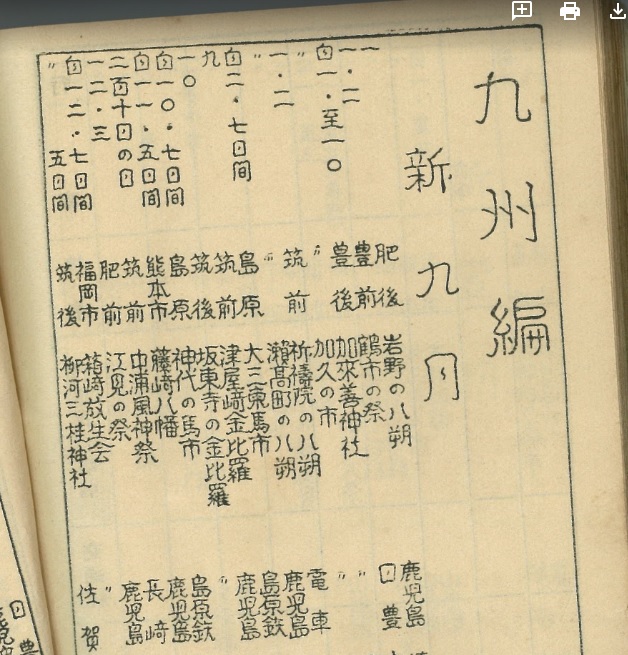 九州編
新九月
一 肥後 岩野の八朔 鹿児島
一・二 豊前 鶴市の祭 日豊
自一・至一〇 豊後 加來善神社 〃
〃 〃 加久の市 〃
一・二 筑前 祈禱院の八朔 電車
〃 〃 瀬高町の八朔 鹿児島
自二・七日間 島原 大三東馬市 島原鉄
九 筑前 津屋崎金比羅 鹿児島
一〇 筑後 坂東寺の金比羅 〃
自一〇・七日間 島原 神代の馬市 島原鉄
自一一・五日間 熊本市 藤崎八幡 鹿児島
二百十日の日 筑前 中浦風神祭 長崎
一二・三 肥前 江見の祭 鹿児島
自一二・七日間 福岡市 箱崎放生会 〃
〃 五日間 筑後 柳河三柱神社 佐賀
日豊
鹿児島